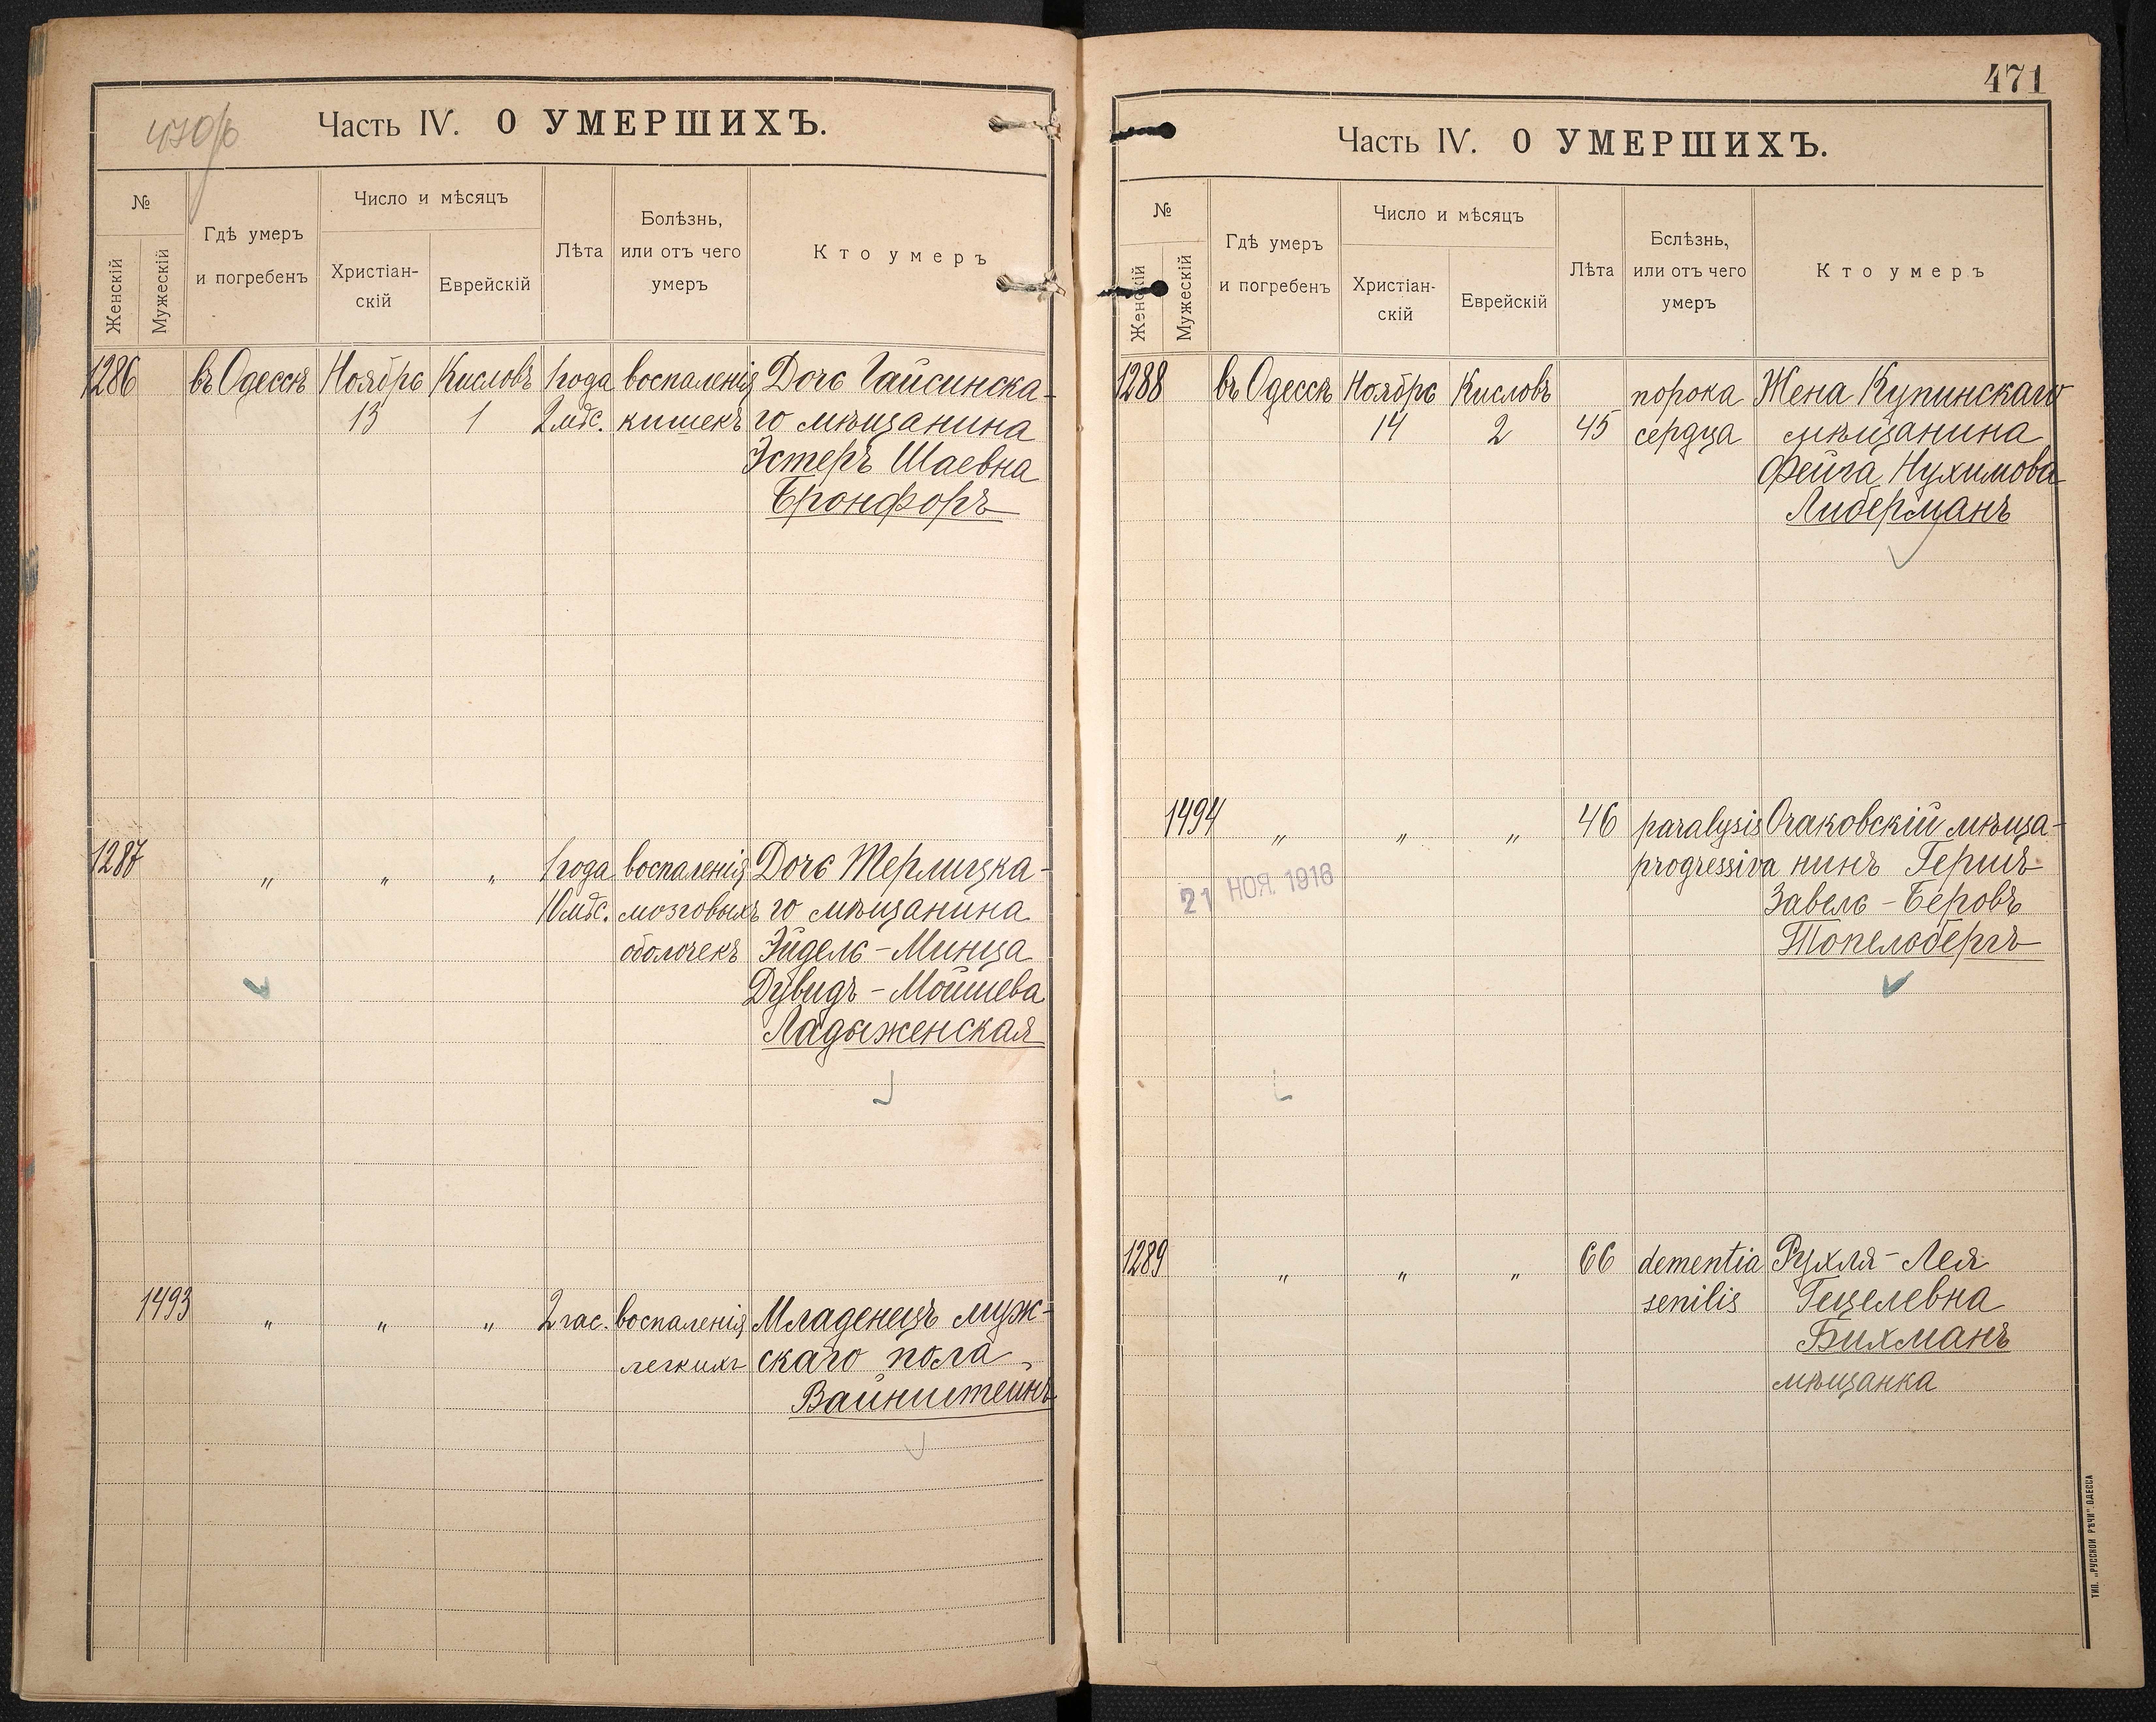 470/б
Часть IV. О УМЕРШИХЪ.
№
Женскій
Мужескій
Гдѣ умеръ
и погребенъ
Число и мѣсяцъ
Христіан-
скій
Еврейскій
Лѣта
Болѣзнь,
или отъ чего
умеръ
Кто умеръ
1286 въ Одессѣ Ноябрь Кисловъ 1 года воспаленія Дочь Гайсинска-
13 1 2 мѣс. кишекъ го мѣщанина
Эстеръ Шаевна
Бронфоръ
1287 " " " 1 года воспаленія Дочь Терлицка-
10 мѣс. мозговыхъ го мѣщанина
оболочекъ Эйдель-Минца
Дувидъ-Мошиева
Ладыженская
1493 " " " 2 час. воспаленія Младенецъ муж-
легкихъ скаго пола
Вайнштейнъ
471
Часть IV. О УМЕРШИХЪ.
№
Женскій
Мужескій
Гдѣ умеръ
и погребенъ
Число и мѣсяцъ
Христіан-
скій
Еврейскій
Лѣта
Бслѣзнь,
или отъ чего
умеръ
Кто умеръ
1288 въ Одессѣ Ноябрь Кисловъ порока Жена Купинскаго
14 2 45 сердца мѣщанина
Фейга Нухимова
Либерманъ
1494 " " " 46 paralysis Очаковскій мѣща-
progressiva нинъ Гершъ
21 НОЯ. 1916
Завель-Беровъ
Топельбергъ
1289 " " " 66 dementia Рухля-Лея
senilis Гецелевна
Бихманъ
мѣщанка
ТИП. „РУССКОЙ РѢЧИ" ОДЕССА